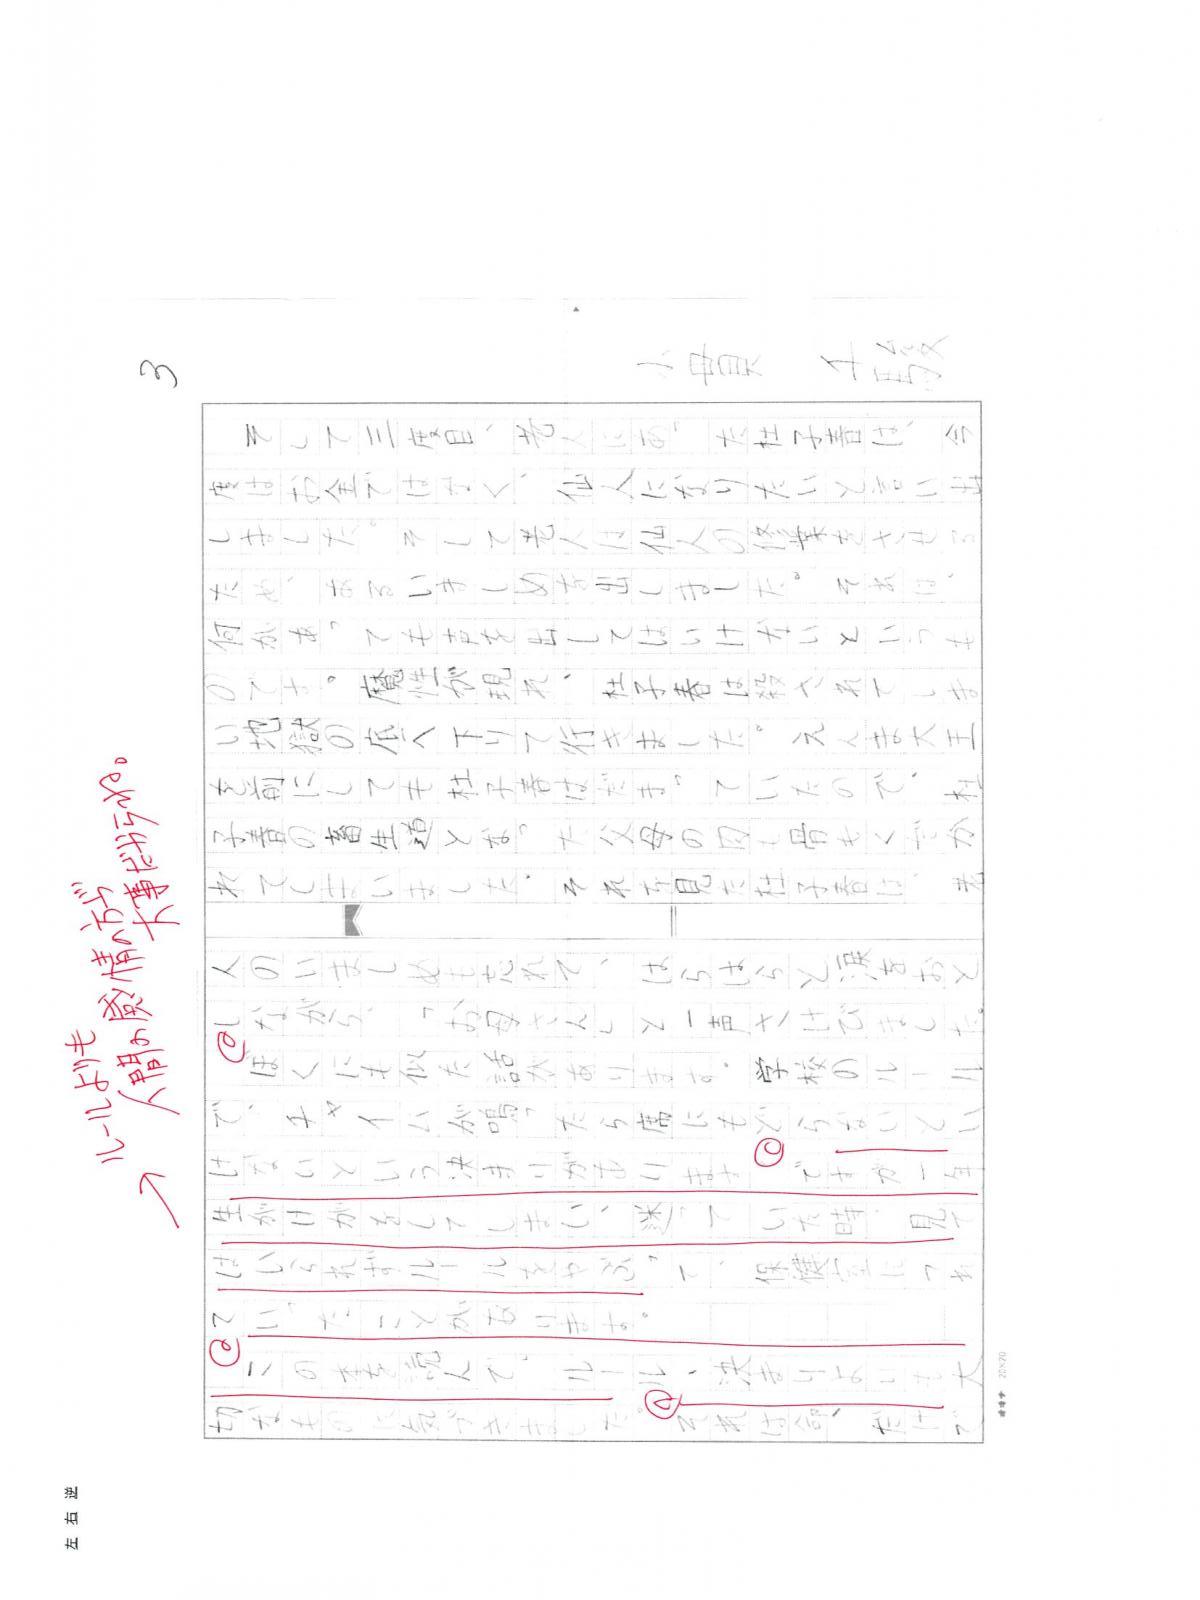 3
小貫
そして三度目、老人にあった杜子春は、今
度はお金ではなく、仙人になりたいと言い出
しました。そして老人は仙人の修業をさせる
ため、あるいましめを出しました。それは、
何があっても声を出してはいけないというも
のです。魔性が現れ、杜子春は殺されてしま
い地獄の底へ下りて行きました。えんま大王
を前にしても杜子春はだまっていたので、杜
子春の畜生道となった父母の肉も骨もくだか
れてしまいました。それを見た杜子春は、老
人のいましめも忘れて、はらはらと涙をおと
しながら、「お母さん」と一声さけびました。
ぼくにも似た話があります。学校のルール
で、チャイムが鳴ったら席にもどらないとい
けないという決まりがあります ですが一年
生がけがをしてしまい、迷っていた時、見て
はいられずルールをやぶって、保健室につれ
ていったことがあります。
この本を読んで、ルール、決まりよりも大
切なものに気づきました。それは命、だけで
ルールよりも
人間の感情の方が
大事だからね。
20×20
左右逆